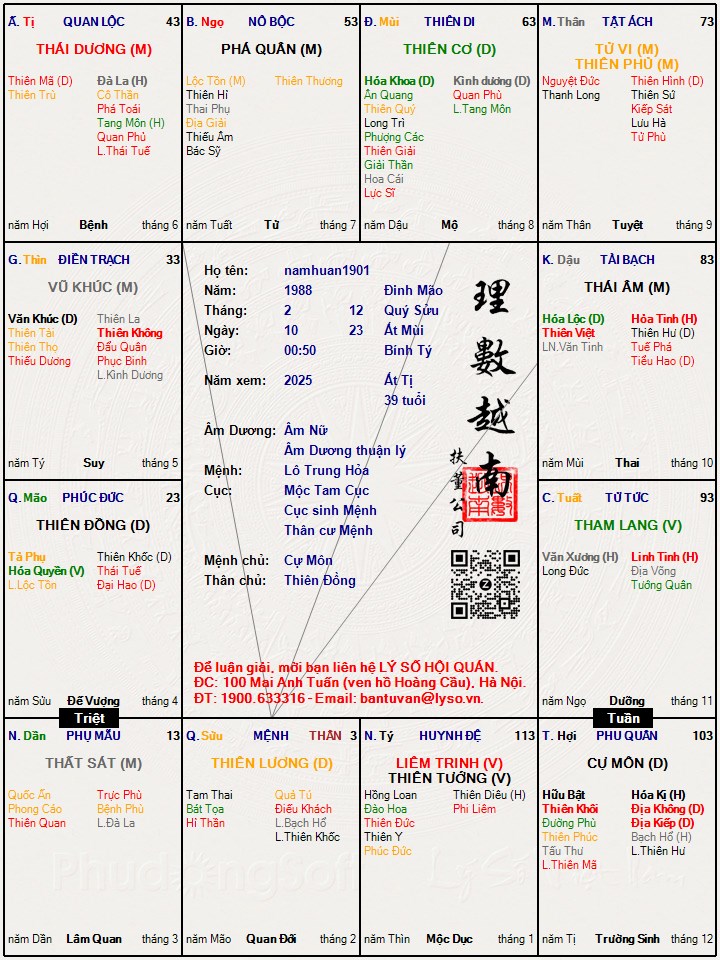 Ã. Tị QUAN LỘC 43
THÁI DƯƠNG (M)
Thiên Mã (D) Đà La (H)
Thiên Trù Cô Thần
Phá Toái
Tang Môn (H)
Quan Phủ
L.Thái Tuế
năm Hợi Bệnh tháng 6
B. Ngọ NÔ BỘC 53
PHÁ QUÂN (M)
Lộc Tồn (M) Thiên Thương
Thiên Hỉ
Thai Phụ
Địa Giải
Thiếu Âm
Bác Sỹ
năm Tuất Tử tháng 7
Đ. Mùi THIÊN DI 63
THIÊN CƠ (D)
Hóa Khoa (D) Kình dương (D)
Ân Quang Quan Phù
Thiên Quý L.Tang Môn
Long Trì
Phượng Các
Thiên Giải
Giải Thần
Hoa Cái
Lực Sĩ
năm Dậu Mộ tháng 8
M. Thân TẬT ÁCH 73
TỬ VI (M)
THIÊN PHỦ (M)
Nguyệt Đức Thiên Hình (D)
Thanh Long Thiên Sứ
Kiếp Sát
Lưu Hà
Tử Phù
năm Thân Tuyệt tháng 9
G. Thìn ĐIỀN TRẠCH 33
VŨ KHÚC (M)
Văn Khúc (D) Thiên La
Thiên Tài Thiên Không
Thiên Thọ Đẩu Quân
Thiếu Dương Phục Binh
L.Kình Dương
năm Tý Suy tháng 5
Họ tên: namhuan1901
Năm: 1988 Đinh Mão
Tháng: 2 12 Quý Sửu
Ngày: 10 23 Ất Mùi
Giờ: 00:50 Bính Tý
Năm xem: 2025 Ất Tị
39 tuổi
Âm Dương: Âm Nữ
Âm Dương thuận lý
Mệnh: Lô Trung Hỏa
Cục: Mộc Tam Cục
Cục sinh Mệnh
Thân cư Mệnh
Mệnh chủ: Cự Môn
Thân chủ: Thiên Đồng
理數越南
扶董公司
Để luận giải, mời bạn liên hệ LÝ SỐ HỘI QUÁN.
ĐC: 100 Mai Anh Tuấn (ven hồ Hoàng Cầu), Hà Nội.
ĐT: 1900.633316 - Email: bantuvan@lyso.vn.
K. Dậu TÀI BẠCH 83
THÁI ÂM (M)
Hóa Lộc (D) Hỏa Tinh (H)
Thiên Việt Thiên Hư (D)
LN.Văn Tinh Tuế Phá
Tiểu Hao (D)
năm Mùi Thai tháng 10
Q. Mão PHÚC ĐỨC 23
THIÊN ĐỒNG (D)
Tả Phụ Thiên Khốc (D)
Hóa Quyền (V) Thái Tuế
L.Lộc Tồn Đại Hao (D)
năm Sửu Đế Vượng tháng 4
C. Tuất TỬ TỨC 93
THAM LANG (V)
Văn Xương (H) Linh Tinh (H)
Long Đức Địa Võng
Tướng Quân
năm Ngọ Dưỡng tháng 11
Triệt
Tuần
N. Dần PHỤ MẪU 13
THẤT SÁT (M)
Quốc Ấn Trực Phù
Phong Cáo Bệnh Phù
Thiên Quan L.Đà La
năm Dần Lâm Quan tháng 3
Q. Sửu MỆNH THÂN 3
THIÊN LƯƠNG (D)
Tam Thai Quả Tú
Bát Tọa Điếu Khách
Hỉ Thần L.Bạch Hổ
L.Thiên Khốc
năm Mão Quan Đới tháng 2
N. Tý HUYNH ĐỆ 113
LIÊM TRINH (V)
THIÊN TƯỚNG (V)
Hồng Loan Thiên Diêu (H)
Đào Hoa Phi Liêm
Thiên Đức
Thiên Y
Phúc Đức
năm Thìn Mộc Dục tháng 1
T. Hợi PHU QUÂN 103
CỰ MÔN (D)
Hữu Bật Hóa Kị (H)
Thiên Khôi Địa Không (D)
Đường Phù Địa Kiếp (D)
Thiên Phúc Bạch Hổ (H)
Tấu Thư L.Thiên Hư
L.Thiên Mã
năm Tị Trường Sinh tháng 12